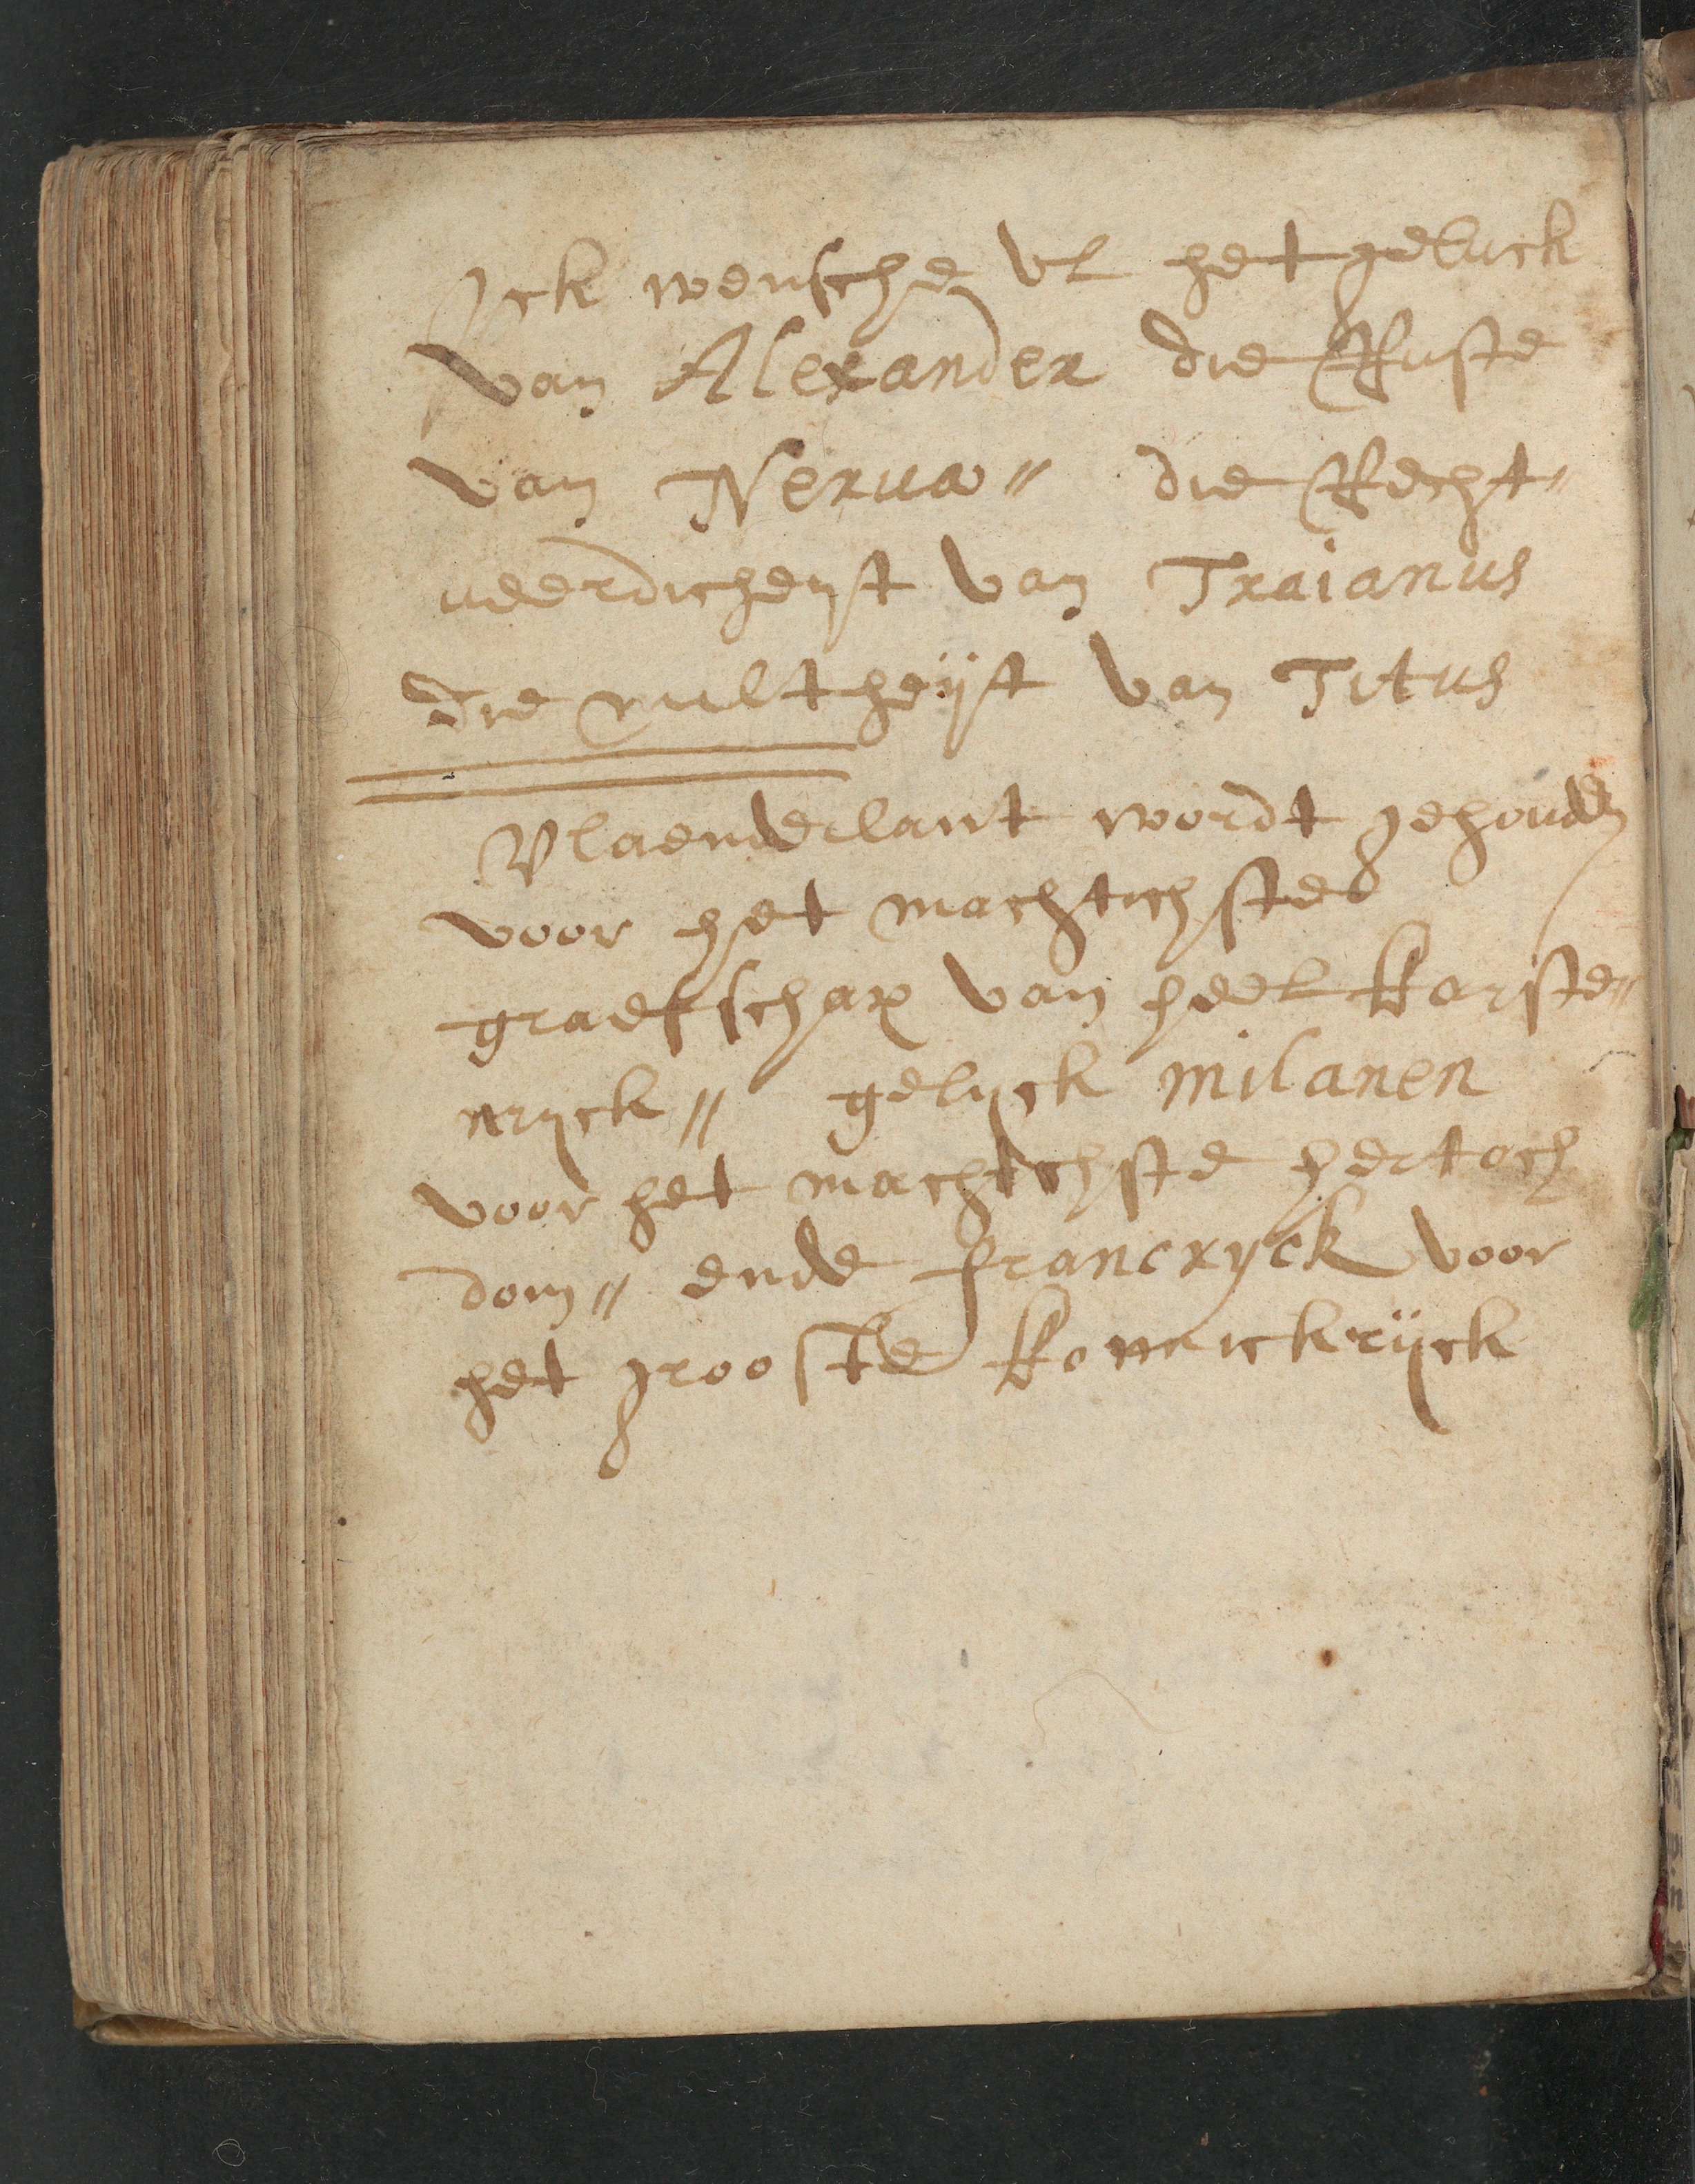 Ick wensche vl het geluck
van Alexander die Ruste
van Nerua" die Recht"
ueerdicheyt van Traianus
die miltheÿt van Titus
Vlaenderlant wordt gehouden
voor het machtichste
graefschap van heel Karste"
nryck" gelyck Milanen
voor het machtichste hertoch
dom" ende francryck voor
het grooste Konickrÿck